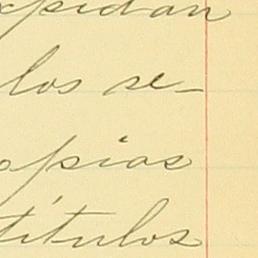 xpidan
los se-
opias
títulos